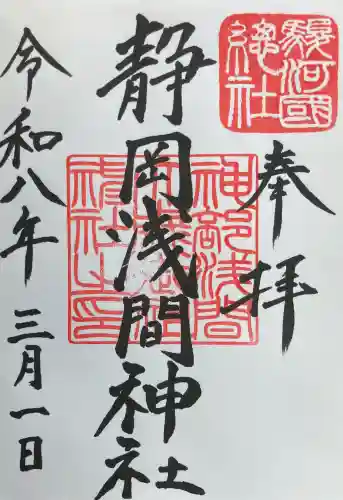 駿河國
總社
奉拝
静岡浅間神社
神部浅間
神社之印
令和八年三月一日